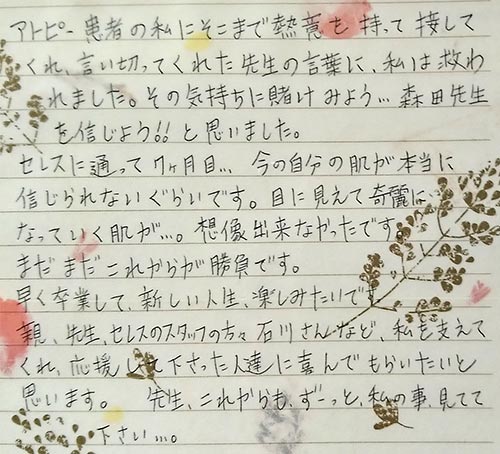 アトピー患者の私にそこまで熱意を持って接して
くれ、言い切ってくれた先生の言葉に、私は救わ
れました。その気持ちに賭けみよう…森田先生
を信じよう!!と思いました。
セレスに通って7ヶ月目…今の自分の肌が本当に
信じられないぐらいです。目に見えて奇麗に…
なっていく肌が…。想像出来なかったです。
まだまだこれからが勝負です。
早く卒業して、新しい人生、楽しみたいです
親、先生、セレスのスタッフの方々 石川さんなど、私を支えて
くれ、応援して下さった人達に喜んでもらいたいと
思います。 先生、これからも、ずーっと、私の事、見てて
下さい…。